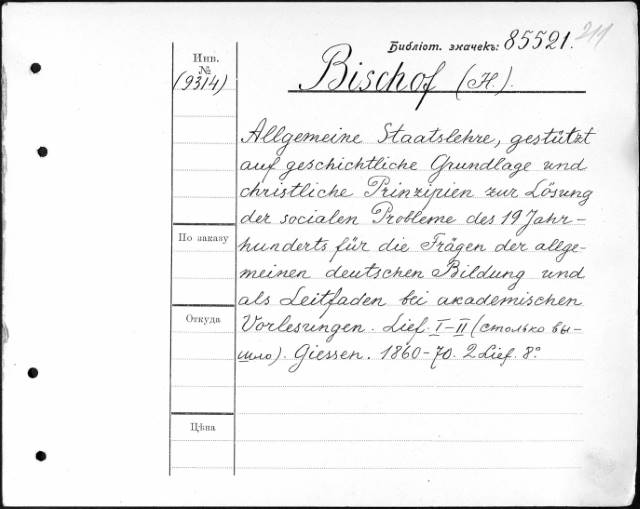 Библіот. значекъ: 85521. 211
Инв.
№
(9314)
Bischof (H.).
Allgemeine Staatslehre, gestützt
auf geschichtliche Grundlage und
christliche Prinzipien zur Lösung
der socialen Probleme des 19 Jahr-
hunderts für die Frägen der allge-
meinen deutschen Bildung und
als Leitfaden bei akademischen
Vorlesungen. Lief. I-II (столько вы-
шло). Giessen. 1860-70. 2 Lief. 8°.
По заказу
Откуда
Цѣна